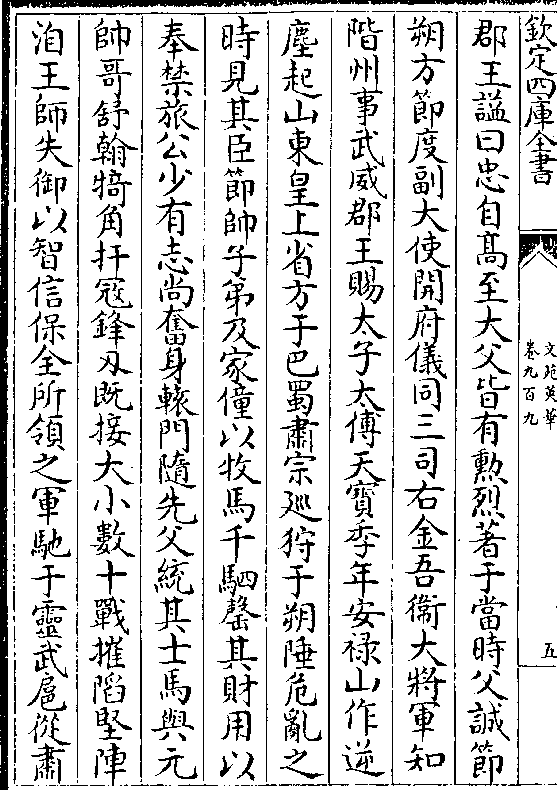 欽定四庫全書
文苑英華
卷九百九
五
郡王謚曰忠自髙至大父皆有勲烈著于當時父誠節
朔方節度副大使開府儀同三司右金吾衛大將軍知
階州事武威郡王賜太子太傅天寳季年安禄山作逆
塵起山東皇上省方于巴蜀肅宗廵狩于朔陲危亂之
時見其臣節帥子弟及家僮以牧馬千駟罄其財用以
奉禁旅公少有志尚奮身轅門隨先父統其士馬與元
帥哥舒翰犄角扞冦鋒刃既接大小數十戰摧䧟堅陣
洎王師失御以智信保全所領之軍馳于靈武扈從肅